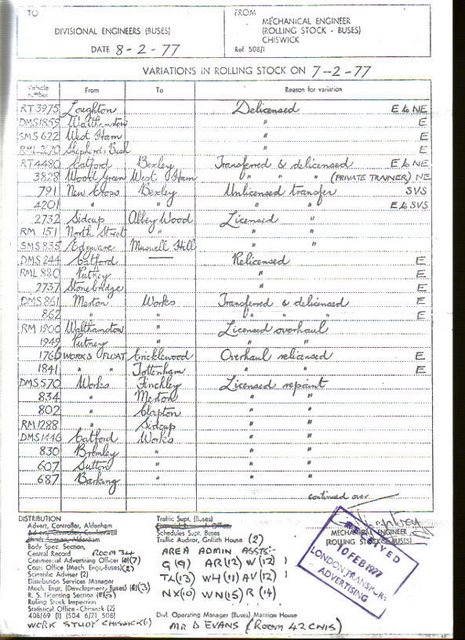 TO
DIVISIONAL ENGINEERS (BUSES)
DATE 8-2-77
FROM
MECHANICAL ENGINEER
(ROLLING STOCK - BUSES)
CHISWICK
Ref 508/1
VARIATIONS IN ROLLING STOCK ON 7-2-77
Vehicle number From To Reason for variation
RT 3975 Loughton Delicensed E & NE
DMS 1859 Walthamstow " E
SMS 622 West Ham " E
RML 2670 Shepherds Bush " E
RT 4480 Catford Bexley Transferred & delicensed E & NE
3828 Wood Green West Ham " " " (PRIVATE TRAINER) NE
791 New Cross Bexley Unlicensed transfer SVS
4201 " " " " E & SVS
2732 Sidcup Abbey Wood Licensed "
RM 151 North Street " " "
SMS 835 Edgware Muswell Hill " "
DMS 244 Catford — Relicensed E
RML 880 Putney " E
2737 Stonebridge " E
DMS 861 Merton Works Transferred & delicensed E
862 " " " " " E
RM 1800 Walthamstow " Licensed overhaul
1949 Putney " " "
1760 WORKS FLOAT Cricklewood Overhaul relicensed E
1841 " " Tottenham " " E
DMS 570 Works Finchley Licensed repaint
834 " Merton " "
802 " Clapton " "
RM 1288 " Sidcup " "
DMS 1446 Catford Works " "
830 Bromley " " "
607 Sutton " " "
687 Barking " " "
continued over
MECHANICAL ENGINEER
(ROLLING STOCK - BUSES)
RECEIVED
10 FEB 1977
LONDON TRANSPORT
ADVERTISING
DISTRIBUTION
Advert. Controller, Aldenham
Body Spec. Section,
Central Record ROOM 34
Commercial Advertising Officer
Cours Office (Mech. Engr. Buses)
Scientific Adviser (2)
Distribution Services Manager
Mech. Engr. (Development- Buses) (3)
R. S. Licensing Section
Rolling Stock Inspection
Statistical Office - Chiswick (2)
406/69 (1) 504 6/71 508)
WORK STUDY CHISWICK (1)
Traffic Supt. (Buses)
Schedules Supt. Buses
Traffic Auditor, Griffith House (2)
AREA ADMIN ASSTS:-
G (9) AR (12) W (12)
TA (13) WH (11) AV (12)
NX (10) WN (15) R (14)
Divl. Operating Manager (Buses) Mattison House
MR D EVANS (ROOM 42 CNIS)